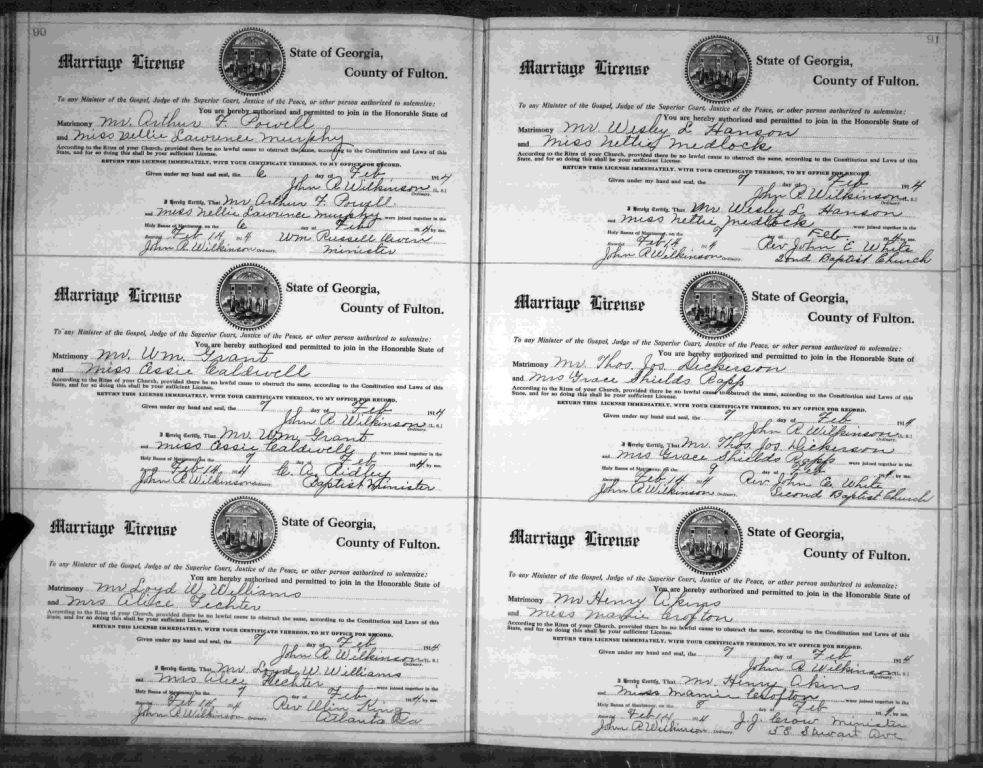 90
Marriage License
State of Georgia,
County of Fulton.
To any Minister of the Gospel, Judge of the Superior Court, Justice of the Peace, or other person authorized to solemnize:
You are hereby authorized and permitted to join in the Honorable State of
Matrimony Mr. Arthur F. Powell
and Miss Nellie Lawrence Murphy
According to the Rites of your Church, provided there be no lawful cause to obstruct the same, according to the Constitution and Laws of this
State, and for so doing this shall be your sufficient License.
RETURN THIS LICENSE IMMEDIATELY, WITH YOUR CERTIFICATE THEREON, TO MY OFFICE FOR RECORD.
Given under my hand and seal, the 6 day of Feb 1914
John R. Wilkinson (L. S.)
Ordinary.
I Hereby Certify, That Mr. Arthur F. Powell
and Miss Nellie Lawrence Murphy were joined together in the
Holy Banns of Matrimony, on the 6 day of Feb 1914 by me.
Recorded Feb 14 1914 Wm Russell Owen
John R Wilkinson Ordinary. Minister
Marriage License
State of Georgia,
County of Fulton.
To any Minister of the Gospel, Judge of the Superior Court, Justice of the Peace, or other person authorized to solemnize:
You are hereby authorized and permitted to join in the Honorable State of
Matrimony Mr. Wm. Grant
and Miss Essie Caldwell
According to the Rites of your Church, provided there be no lawful cause to obstruct the same, according to the Constitution and Laws of this
State, and for so doing this shall be your sufficient License.
RETURN THIS LICENSE IMMEDIATELY, WITH YOUR CERTIFICATE THEREON, TO MY OFFICE FOR RECORD.
Given under my hand and seal, the 7 day of Feb 1914
John R. Wilkinson (L. S.)
Ordinary.
I Hereby Certify, That Mr. Wm. Grant
and Miss Essie Caldwell were joined together in the
Holy Banns of Matrimony, on the 7 day of Feb 1914 by me.
Feb 14 1914 C. A. Ridley
John R Wilkinson Ordinary. Baptist Minister
Marriage License
State of Georgia,
County of Fulton.
To any Minister of the Gospel, Judge of the Superior Court, Justice of the Peace, or other person authorized to solemnize:
You are hereby authorized and permitted to join in the Honorable State of
Matrimony Mr Loyd W. Williams
and Mrs Alice Fechter
According to the Rites of your Church, provided there be no lawful cause to obstruct the same, according to the Constitution and Laws of this
State, and for so doing this shall be your sufficient License.
RETURN THIS LICENSE IMMEDIATELY, WITH YOUR CERTIFICATE THEREON, TO MY OFFICE FOR RECORD.
Given under my hand and seal, the 7 day of Feb 1914
John R. Wilkinson (L. S.)
Ordinary.
I Hereby Certify, That Mr. Loyd W. Williams
and Mrs. Alice Flechter were joined together in the
Holy Banns of Matrimony, on the 7 day of Feb. 1914 by me.
Feb 14 1914 Rev King
John R Wilkinson Ordinary. Atlanta Ga
91
Marriage License
State of Georgia,
County of Fulton.
To any Minister of the Gospel, Judge of the Superior Court, Justice of the Peace, or other person authorized to solemnize:
You are hereby authorized and permitted to join in the Honorable State of
Matrimony Mr. Wesley L. Hanson
and Miss Nettie Medlock
According to the Rites of your Church, provided there be no lawful cause to obstruct the same, according to the Constitution and Laws of this
State, and for so doing this shall be your sufficient License.
RETURN THIS LICENSE IMMEDIATELY, WITH YOUR CERTIFICATE THEREON, TO MY OFFICE FOR RECORD.
Given under my hand and seal, the 7 day of Feb 1914
John R. Wilkinson (L. S.)
Ordinary.
I Hereby Certify, That Mr Wesley L. Hanson
and Miss Nettie Medlock were joined together in the
Holy Banns of Matrimony, on the day of Feb 1914 by me.
Recorded Feb 14 1914 Rev John E White
John R Wilkinson Ordinary. 2nd Baptist Church
Marriage License
State of Georgia,
County of Fulton.
To any Minister of the Gospel, Judge of the Superior Court, Justice of the Peace, or other person authorized to solemnize:
You are hereby authorized and permitted to join in the Honorable State of
Matrimony Mr. Thos. Jos. Dickerson
and Mrs Grace Shields Rapp
According to the Rites of your Church, provided there be no lawful cause to obstruct the same, according to the Constitution and Laws of this
State, and for so doing this shall be your sufficient License.
RETURN THIS LICENSE IMMEDIATELY, WITH YOUR CERTIFICATE THEREON, TO MY OFFICE FOR RECORD.
Given under my hand and seal, the 7 day of Feb 1914
John R Wilkinson (L. S.)
Ordinary.
I Hereby Certify, That Mr. Thos. Jos. Dickerson
and Mrs Grace Shields Rapp were joined together in the
Holy Banns of Matrimony, on the 9 day of Feb 1914 by me.
Feb 14 1914 Rev. John E. White
John R Wilkinson Ordinary. Second Baptist Church
Marriage License
State of Georgia,
County of Fulton.
To any Minister of the Gospel, Judge of the Superior Court, Justice of the Peace, or other person authorized to solemnize:
You are hereby authorized and permitted to join in the Honorable State of
Matrimony Mr Henry Akins
and Miss Mamie Crofton
According to the Rites of your Church, provided there be no lawful cause to obstruct the same, according to the Constitution and Laws of this
State, and for so doing this shall be your sufficient License.
RETURN THIS LICENSE IMMEDIATELY, WITH YOUR CERTIFICATE THEREON, TO MY OFFICE FOR RECORD.
Given under my hand and seal, the 7 day of Feb 1914
John R Wilkinson (L. S.)
Ordinary.
I Hereby Certify, That Mr. Henry Akins
and Miss Mamie Crofton were joined together in the
Holy Banns of Matrimony, on the 8 day of Feb 1914 by me.
Feb 14 1914 J. J. Crow Minister
John R Wilkinson Ordinary. 58 Stewart Ave